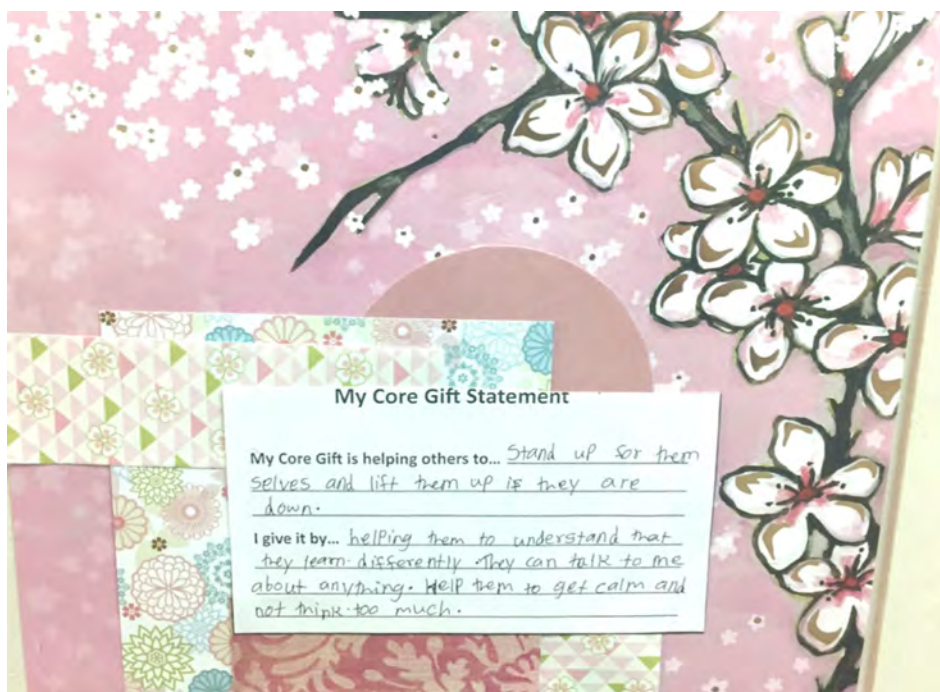 My Core Gift Statement
My Core Gift is helping others to... Stand up for them
selves and lift them up if they are
down.
I give it by... helping them to understand that
they learn differently. They can talk to me
about anything. Help them to get calm and
not think too much.